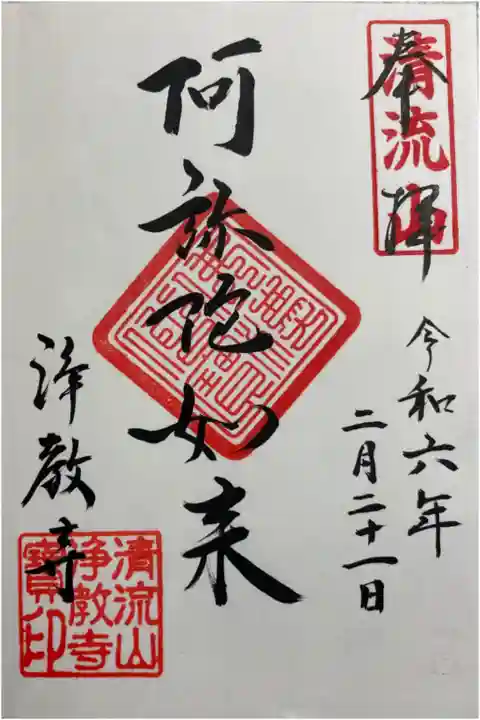 奉拝
清流山
令和六年
二月二十一日
阿弥陀如来
浄教寺
清流山
浄教寺
寶印